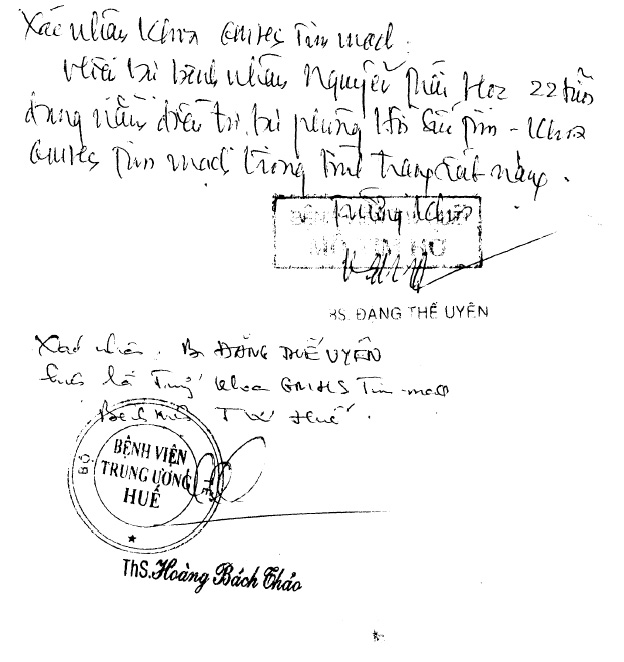 Xác nhận Khoa GMHS Tim mạch:
Hiện tại bệnh nhân Nguyễn Thái Hoà 22 tuổi
đang nằm điều trị tại phòng Hồi Sức Tim - Khoa
GMHS Tim mạch trong tình trạng rất nặng.
Trưởng Khoa
BS. ĐẶNG THẾ UYÊN
Xác nhận. Bs ĐẶNG THẾ UYÊN
là Trưởng Khoa GMHS Tim-mạch
Bệnh viện TW Huế.
BỘ
BỆNH VIỆN
TRUNG ƯƠNG
HUẾ
ThS. Hoàng Bách Thảo